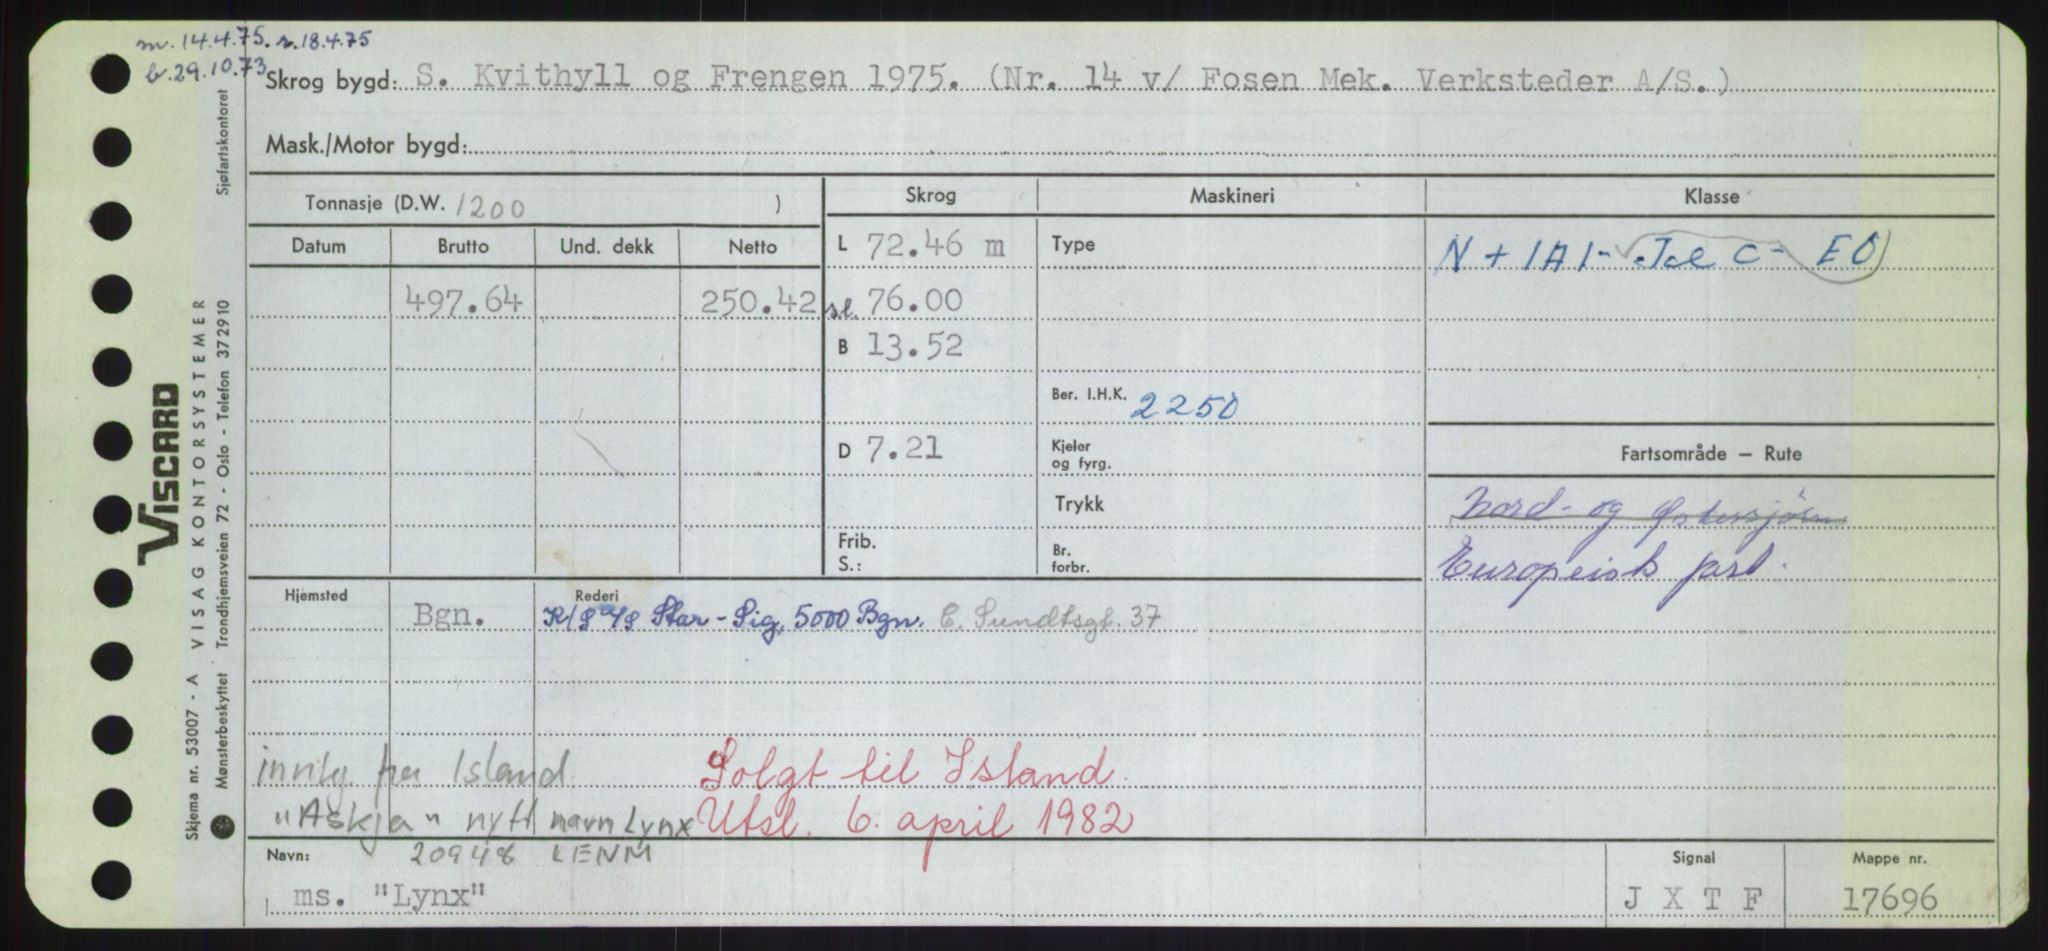 m. 14.4.75. s. 18.4.75
b. 29.10.73
Skrog bygd: S. Kvithyll og Frengen 1975. (Nr. 14 v/ Fosen Mek. Verksteder A/S.)
Mask./Motor bygd:
Tonnasje (D.W. 1200 )
Skrog Maskineri Klasse
Datum Brutto Und. dekk Netto
L 72.46 m Type N + 1A1 - Jsl C - EO
497.64 250.42 sl. 76.00
B 13.52
Ber. I.H.K. 2250
D 7.21 Kjeler og fyrg.
Fartsområde — Rute
Trykk Nord- og Østersjøen
Frib. S.: Br. forbr. Europeisk fart.
Hjemsted Rederi
Bgn. K/S A/S Star-Sig, 5000 Bgn. C. Sundtsgt. 37
innkj. fra Island Solgt til Island.
"Askja" nytt navn Lynx Utsl. 6. april 1982
Navn: 20948 LENM Signal Mappe nr.
ms. "Lynx" J X T F 17696
VISCARD
Skjema nr. 53007 - A VISAG KONTORSYSTEMER
Mønsterbeskyttet Trondhjemsveien 72 - Oslo - Telefon 372910 Sjøfartskontoret